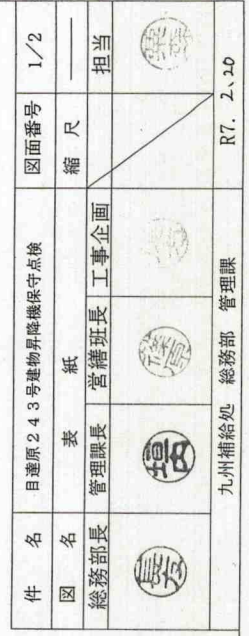 件 名 目達原243号建物昇降機保守点検 図面番号 1/2
図 名 表 紙 縮 尺 ——
総務部長 管理課長 営繕班長 工事企画 担当
九州補給処 総務部 管理課 R7. 2、20